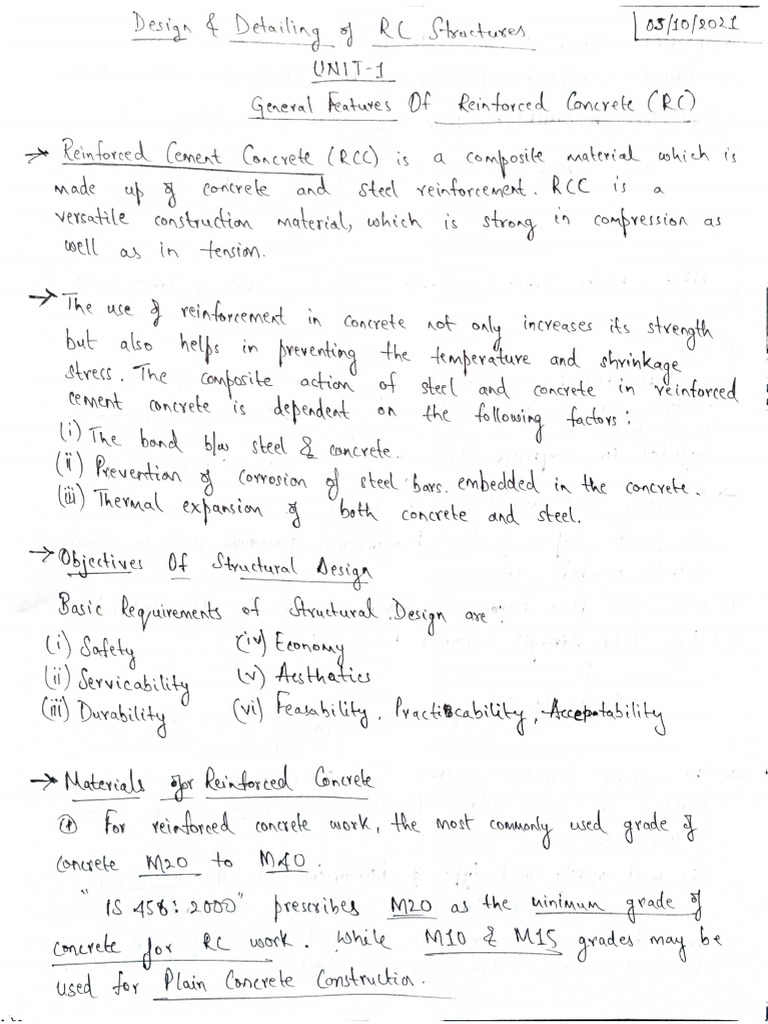 Design & Detailing of RC Structures
05/10/2021
UNIT-1
General Features Of Reinforced Concrete (RC)
→ Reinforced Cement Concrete (RCC) is a composite material which is
made up of concrete and steel reinforcement. RCC is a
versatile construction material, which is strong in compression as
well as in tension.
→ The use of reinforcement in concrete not only increases its strength
but also helps in preventing the temperature and shrinkage
stress. The composite action of steel and concrete in reinforced
cement concrete is dependent on the following factors:
(i) The bond b/w steel & concrete.
(ii) Prevention of corrosion of steel bars. embedded in the concrete.
(iii) Thermal expansion of both concrete and steel.
→ Objectives Of Structural Design
Basic Requirements of Structural Design are:
(i) Safety (iv) Economy
(ii) Servicability (v) Aesthatics
(iii) Durability (vi) Feasability, Practiscability, Acceptability
→ Materials for Reinforced Concrete
For reinforced concrete work, the most commonly used grade of
concrete M20 to M40.
"IS 456:2000" prescribes M20 as the minimum grade of
concrete for RC work. While M10 & M15 grades may be
used for Plain Concrete Construction.